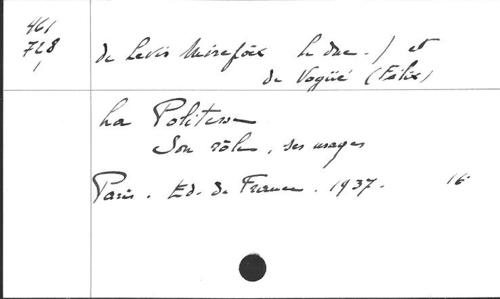 461
728
1
de Levis Mirepoix le duc.) et
de Vogüé (Félix)
La Politesse
Son rôle, ses usages
Paris. Ed. de France. 1937. 16°